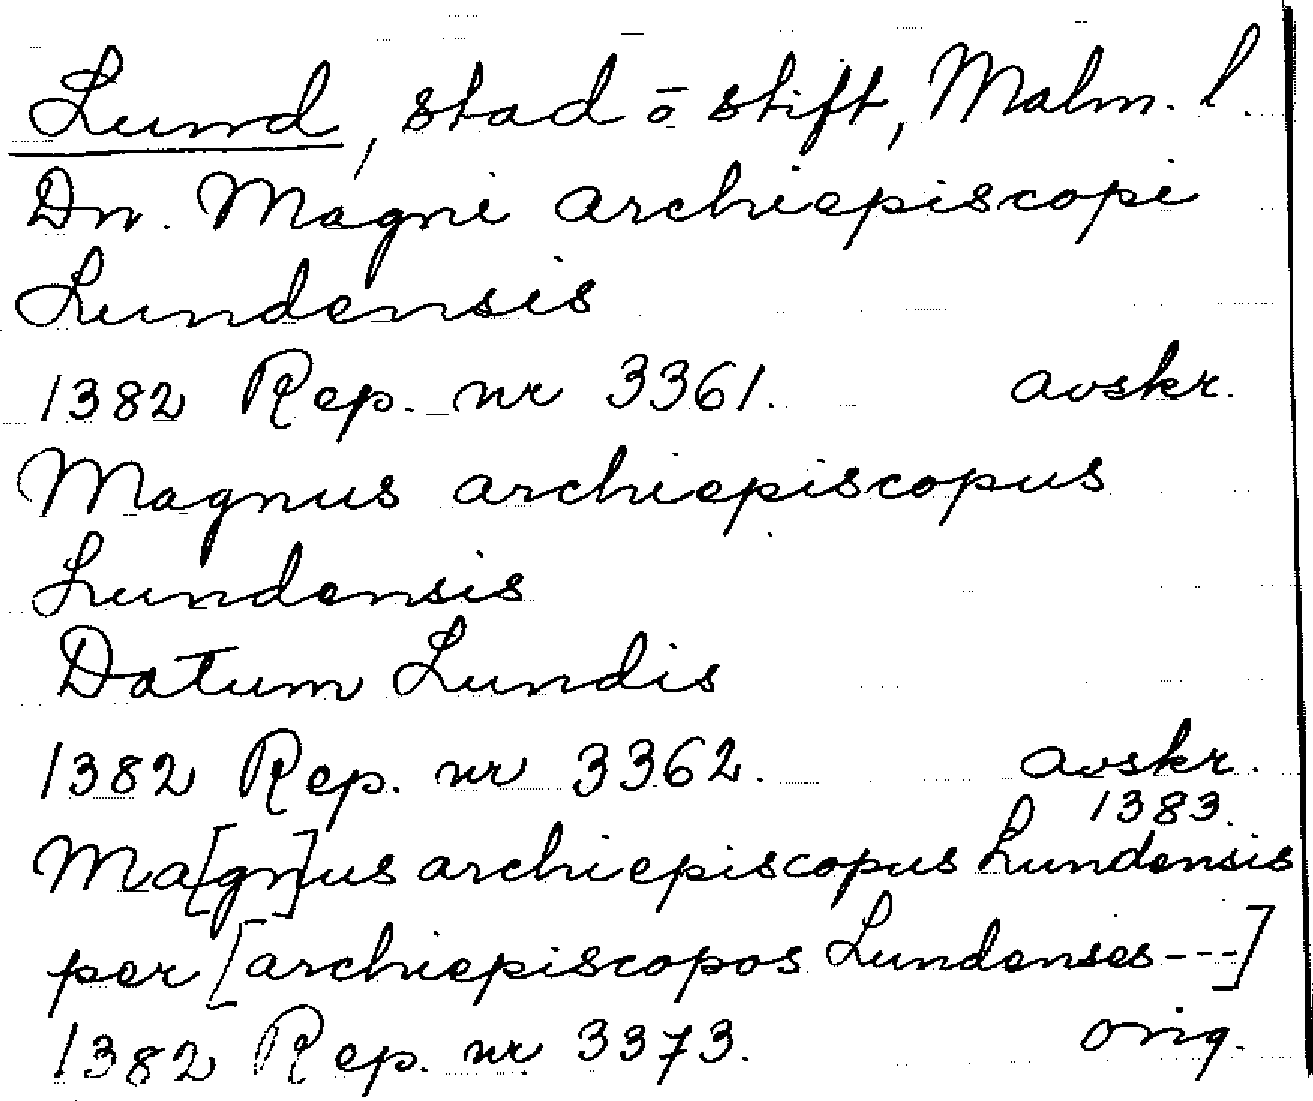 Lund, stad o stift, Malm. l.
Dn. Magni archiepiscopi
Lundensis
1382 Rep. nr 3361. avskr.
Magnus archiepiscopus
Lundensis
Datum Lundis
1382 Rep. nr 3362. avskr.
1383.
Ma[gn]us archiepiscopus Lundensis
per [archiepiscopos Lundenses---]
1382 Rep. nr 3373. orig.